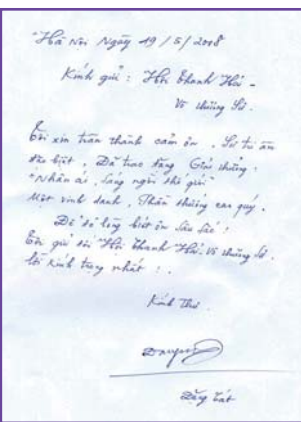 "Hà Nội Ngày 19/5/2008
Kính gửi : Hội Thanh Hải -
Vô thượng Sư.
Tôi xin trân thành cảm ơn. Sư tư ân
đặc biệt, Đã trao tặng Giải thưởng:
"Nhân ái, sáng ngời thế giới"
Một vinh danh, Phần thưởng cao quý.
Để tỏ lòng biết ơn sâu sắc!
Tôi gửi tới "Hội Thanh Hải Vô thượng Sư.
lời kính trọng nhất!.
Kính Thư
Đặng Tất